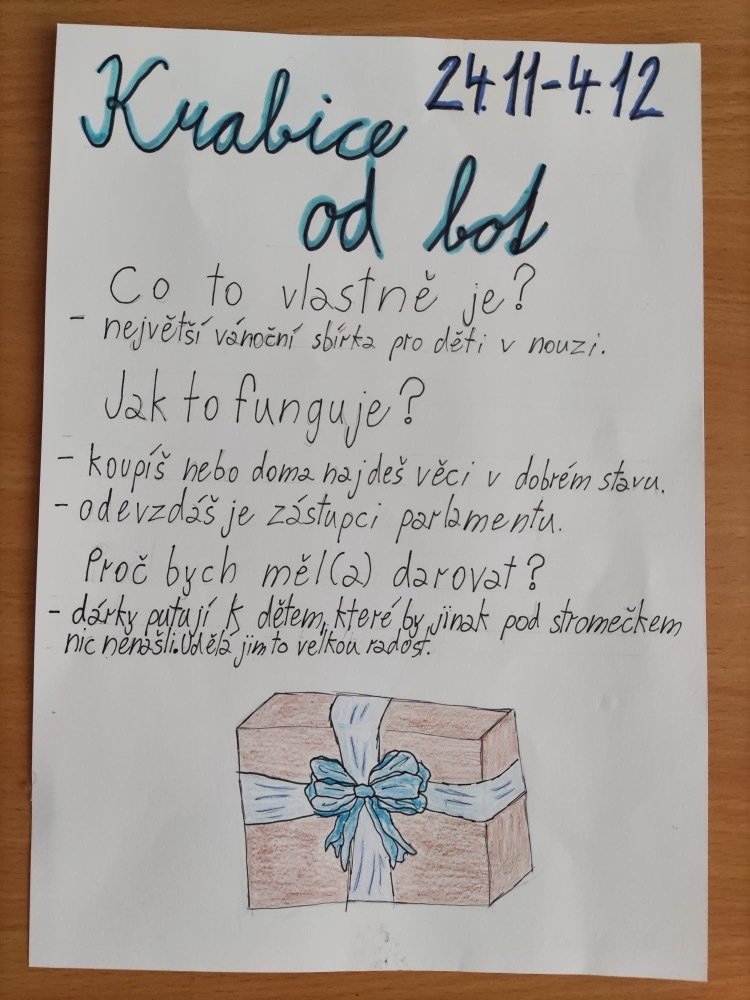 Krabice 24.11-4.12
od bot
Co to vlastně je?
- největší vánoční sbírka pro děti v nouzi.
Jak to funguje?
- koupíš nebo doma najdeš věci v dobrém stavu.
- odevzdáš je zástupci parlamentu.
Proč bych měl(a) darovat?
- dárky putují k dětem, které by jinak pod stromečkem
nic nenašli. Udělá jim to velkou radost.